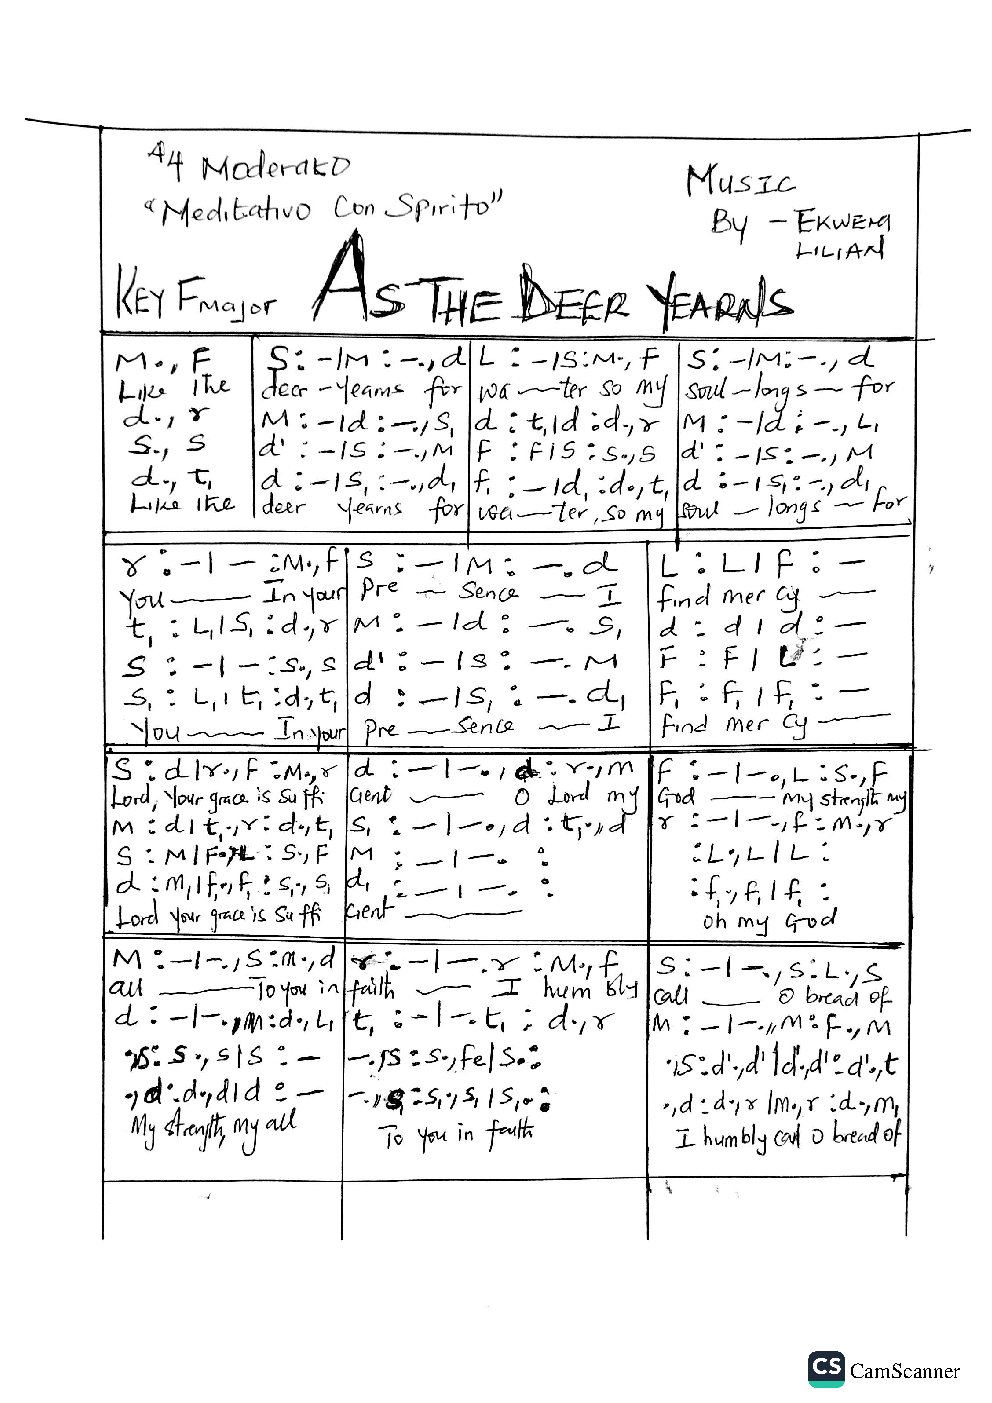 44 Moderato
"Meditativo Con Spirito"
Music
By - EKWEM
LILIAN
KEY F major AS THE DEER YEARNS
M., F | S : - | M : - ., d | L : - | S : M ., F | S : - | M : - ., d
Like the | deer - yearns for | wa — ter so my | soul - longs - for
d ., r | M : - | d : - ., S₁ | d : t₁ | d : d ., r | M : - | d : - ., L₁
S ., S | d' : - | S : - ., M | F : F | S : S ., S | d' : - | S : - ., M
d ., t₁ | d : - | S₁ : - ., d₁ | f₁ : - | d₁ : d ., t₁ | d : - | S₁ : - ., d₁
Like the | deer yearns for | wa — ter, so my | soul - longs - for
r : - | - : M ., F | S : - | M : - . d | L : L | F : -
You — In your | Pre - Sence - I | find mer cy —
t₁ : L₁ | S₁ : d ., r | M : - | d : - . S₁ | d : d | d : -
S : - | - : S ., S | d' : - | S : - . M | F : F | L : -
S₁ : L₁ | t₁ : d ., t₁ | d : - | S₁ : - . d₁ | F₁ : F₁ | F₁ : -
You — In your | Pre - Sence - I | find mer cy —
S : d | r ., F : M ., r | d : - | - ., d : r ., m | F : - | - ., L : S ., F
Lord, Your grace is Su ffi | cient — O Lord my | God — my strength my
M : d | t₁ ., r : d ., t₁ | S₁ : - | - ., d : t₁ ., d | r : - | - ., f : m ., r
S : M | F ., L : S ., F | M : - | - . : | : L ., L | L :
d : M₁ | f₁ ., f₁ : S₁ ., S₁ | d₁ : - | - . : | : f₁ ., f₁ | f₁ :
Lord your grace is Su ffi | cient — | oh my God
M : - | - ., S : m ., d | r : - | - . r : M ., f | S : - | - ., S : L ., S
all — To you in | faith — I hum bly | call — O bread of
d : - | - ., M : d ., L₁ | t₁ : - | - . t₁ : d ., r | M : - | - ., M : F ., M
., S : S ., S | S : - | - ., S : S ., fe | S . : | ., S : d' ., d' | d' ., d' : d' ., t
., d : d ., d | d : - | - ., S : S₁ ., S₁ | S₁ . : | ., d : d ., r | M ., r : d ., M₁
My strength, my all | To you in faith | I humbly call O bread of
CS CamScanner